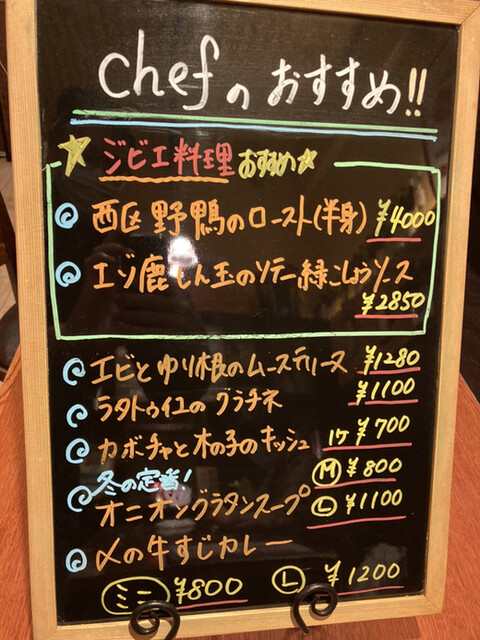 chefのおすすめ!!
ジビエ料理おすすめ
西区 野鴨のロースト(半身) ¥4000
エゾ鹿しん玉のソテー緑こしょうソース
¥2850
エビとゆり根のムースティーヌ ¥1280
ラタトゥイユのグラチネ ¥1100
カボチャと木の子のキッシュ 1ケ ¥700
冬の定番!
オニオングラタンスープ Ⓜ ¥800
Ⓛ ¥1100
〆の牛すじカレー
ミニ ¥800 Ⓛ ¥1200